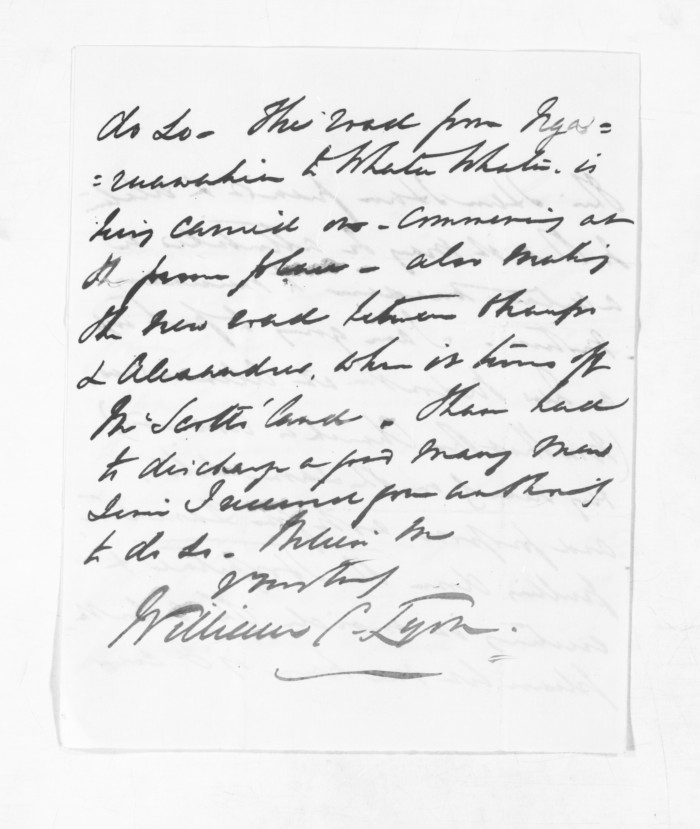 do so - The road from Ngar=
=uawahia to Whata Whata. is
being carried on - Commencing at
the former place - also making
the new road between
& Alexandra, when it turns off
Mr Scotts' land - I have had
to discharge a good many men
since I received your authority
to do so - Believe me
yours truly
William C. Lyon.